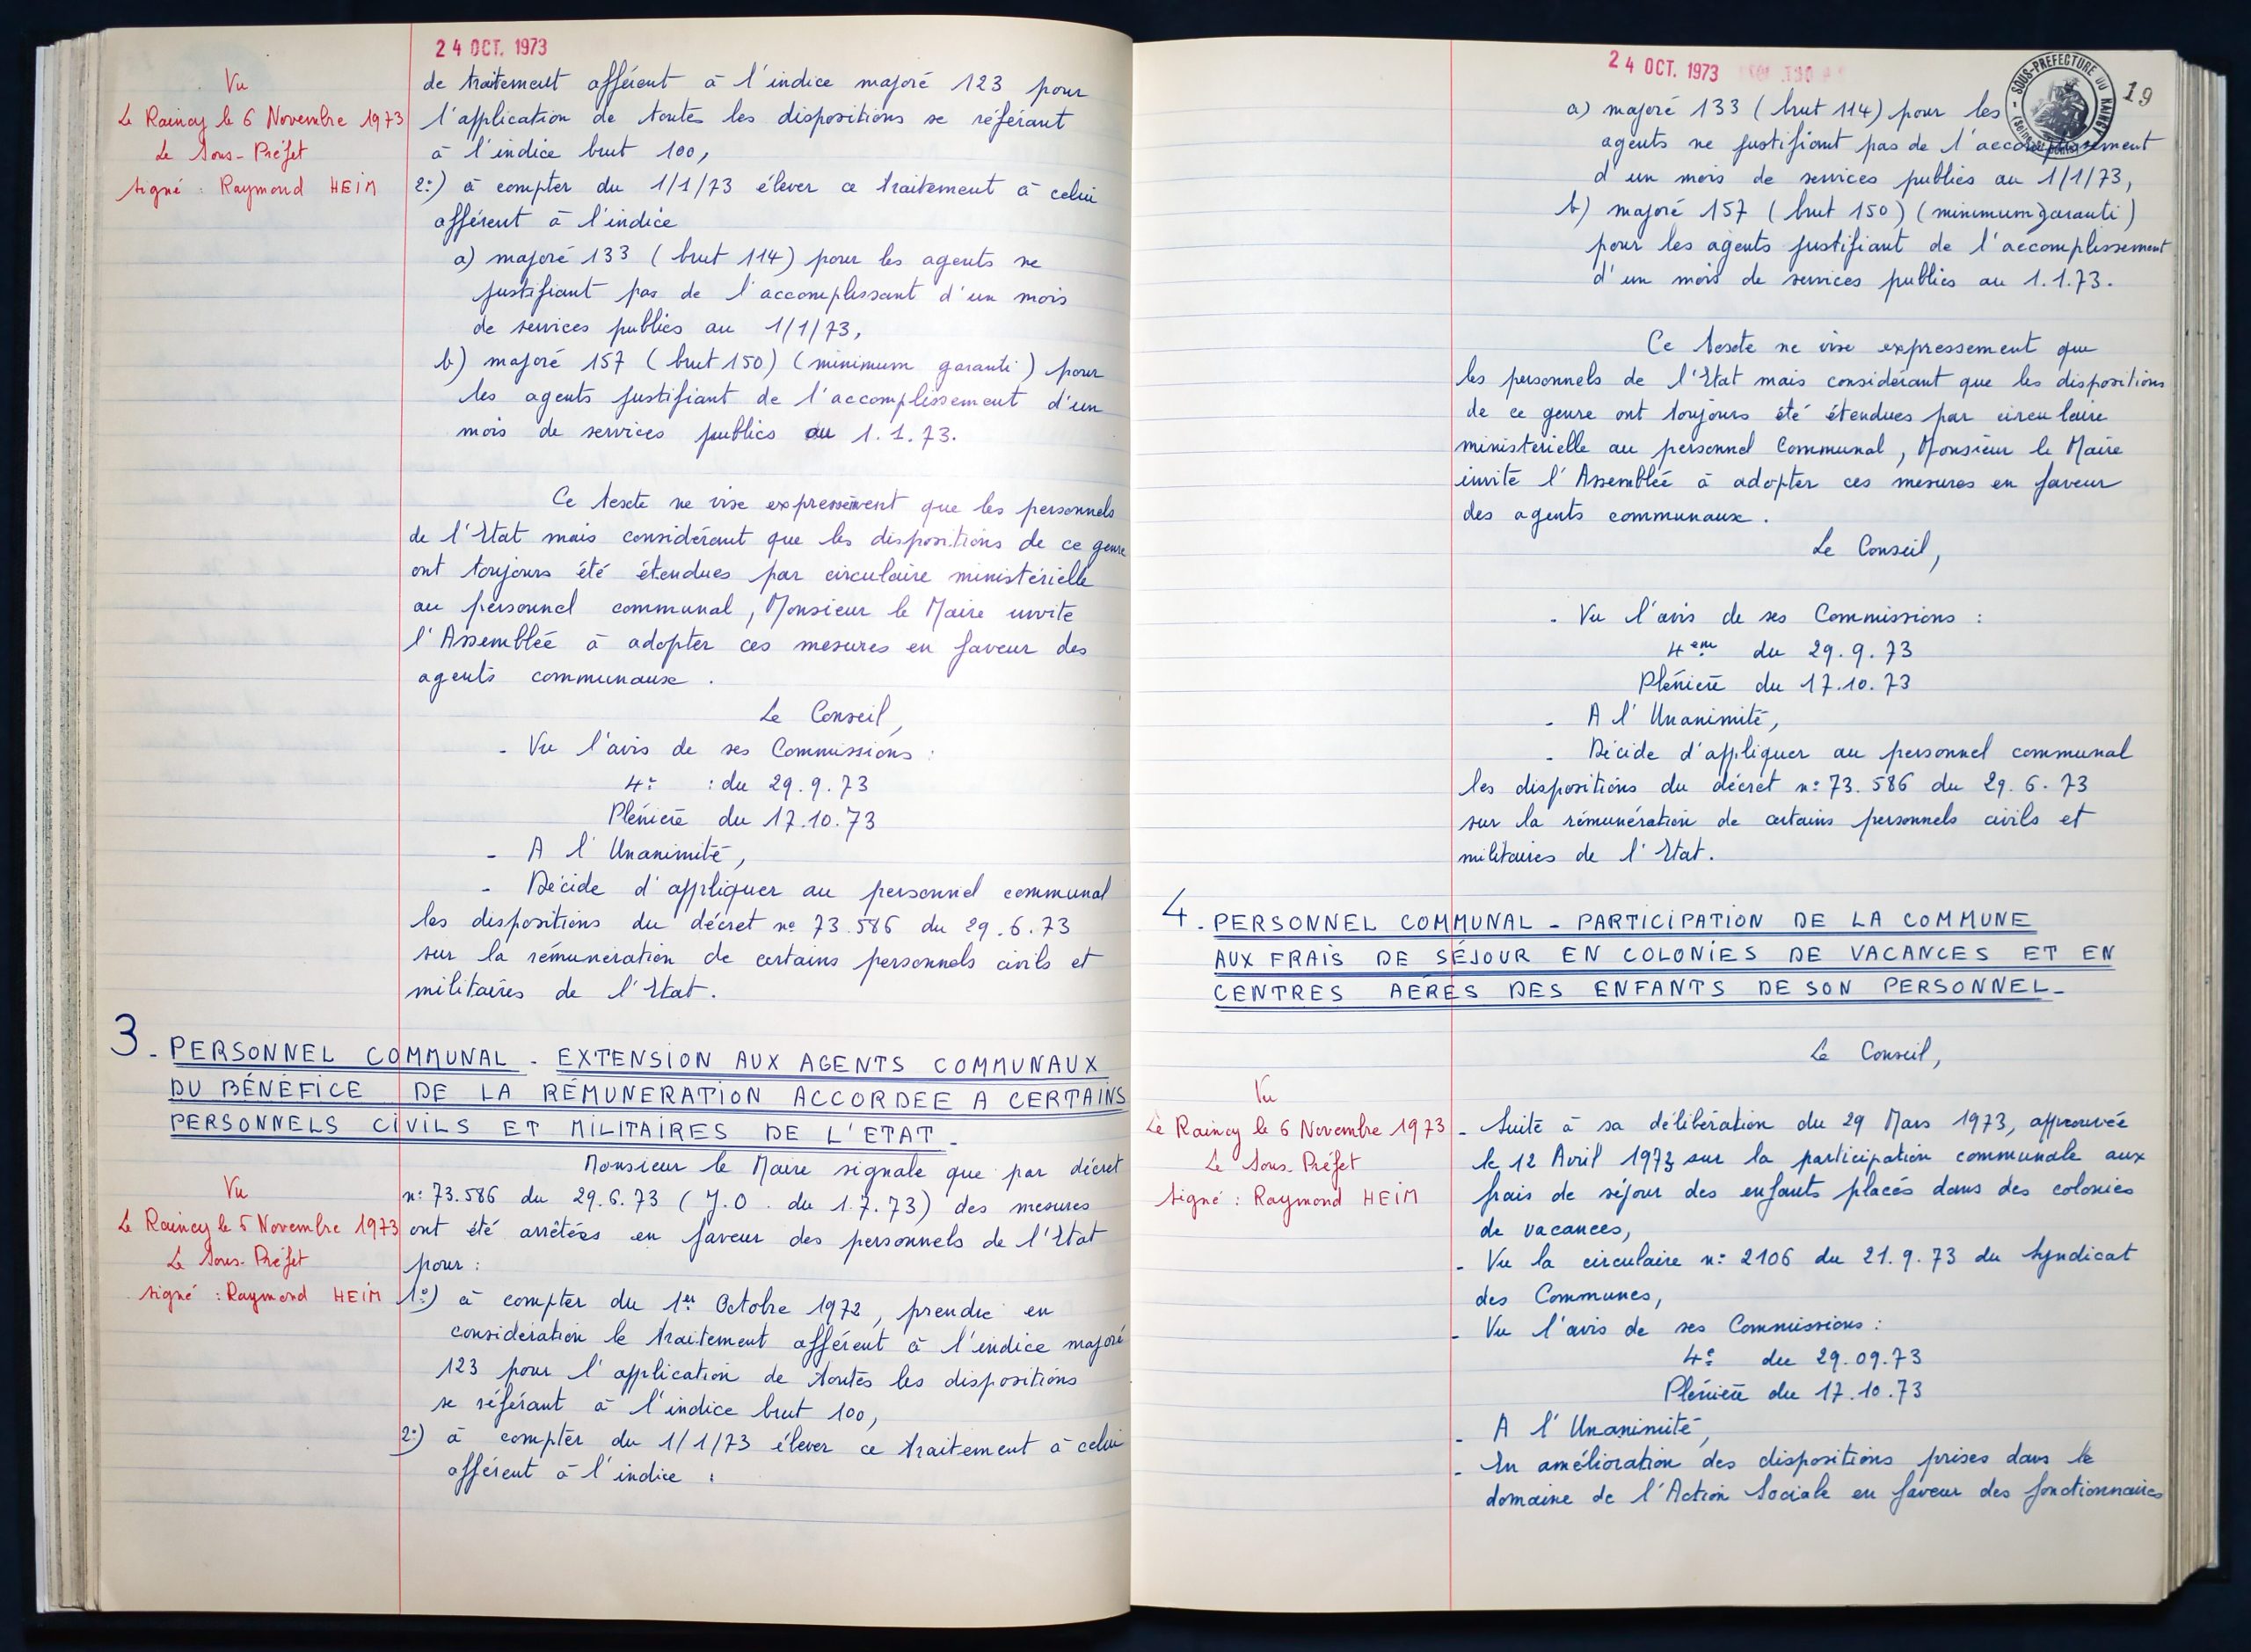 24 OCT. 1973
Vu
Le Raincy le 6 Novembre 1973
Le Sous-Préfet
signé : Raymond HEIM
de traitement afférent à l'indice majoré 123 pour
l'application de toutes les dispositions se référant
à l'indice brut 100,
2°) à compter du 1/1/73 élever ce traitement à celui
afférent à l'indice
a) majoré 133 (brut 114) pour les agents ne
justifiant pas de l'accomplissant d'un mois
de services publics au 1/1/73,
b) majoré 157 (brut 150) (minimum garanti) pour
les agents justifiant de l'accomplissement d'un
mois de services publics au 1.1.73.
Ce texte ne vise expressément que les personnels
de l'Etat mais considérant que les dispositions de ce genre
ont toujours été étendues par circulaire ministérielle
au personnel communal, Monsieur le Maire invite
l'Assemblée à adopter ces mesures en faveur des
agents communaux.
Le Conseil,
- Vu l'avis de ses Commissions :
4° : du 29.9.73
Plénière du 17.10.73
- A l'Unanimité,
- Décide d'appliquer au personnel communal
les dispositions du décret n° 73.586 du 29.6.73
sur la rémunération de certains personnels civils et
militaires de l'Etat.
3 - PERSONNEL COMMUNAL - EXTENSION AUX AGENTS COMMUNAUX
DU BÉNÉFICE DE LA RÉMUNERATION ACCORDEE A CERTAINS
PERSONNELS CIVILS ET MILITAIRES DE L'ETAT -
Vu
Le Raincy le 5 Novembre 1973
Le Sous-Préfet
signé : Raymond HEIM
Monsieur le Maire signale que par décret
n° 73.586 du 29.6.73 (J.O. du 1.7.73) des mesures
ont été arrêtées en faveur des personnels de l'Etat
pour :
1°) à compter du 1er Octobre 1972, prendre en
considération le traitement afférent à l'indice majoré
123 pour l'application de toutes les dispositions
se référant à l'indice brut 100,
2°) à compter du 1/1/73 élever ce traitement à celui
afférent à l'indice :
24 OCT. 1973
SOUS-PREFECTURE DU RAINCY
19
a) majoré 133 (brut 114) pour les
agents ne justifiant pas de l'accomplissement
d'un mois de services publics au 1/1/73,
b) majoré 157 (brut 150) (minimum garanti)
pour les agents justifiant de l'accomplissement
d'un mois de services publics au 1.1.73.
Ce texte ne vise expressement que
les personnels de l'Etat mais considérant que les dispositions
de ce genre ont toujours été étendues par circulaire
ministérielle au personnel Communal, Monsieur le Maire
invite l'Assemblée à adopter ces mesures en faveur
des agents communaux.
Le Conseil,
- Vu l'avis de ses Commissions :
4eme du 29.9.73
Plénière du 17.10.73
- A l'Unanimité,
- Décide d'appliquer au personnel communal
les dispositions du décret n° 73.586 du 29.6.73
sur la rémunération de certains personnels civils et
militaires de l'Etat.
4 - PERSONNEL COMMUNAL - PARTICIPATION DE LA COMMUNE
AUX FRAIS DE SÉJOUR EN COLONIES DE VACANCES ET EN
CENTRES AÉRÉS DES ENFANTS DE SON PERSONNEL -
Le Conseil,
Vu
Le Raincy le 6 Novembre 1973
Le Sous-Préfet
signé : Raymond HEIM
- Suite à sa délibération du 29 Mars 1973, approuvée
le 12 Avril 1973 sur la participation communale aux
frais de séjour des enfants placés dans des colonies
de vacances,
- Vu la circulaire n° 2106 du 21.9.73 du Syndicat
des Communes,
- Vu l'avis de ses Commissions :
4° du 29.09.73
Plénière du 17.10.73
- A l'Unanimité,
- En amélioration des dispositions prises dans le
domaine de l'Action Sociale en faveur des fonctionnaires